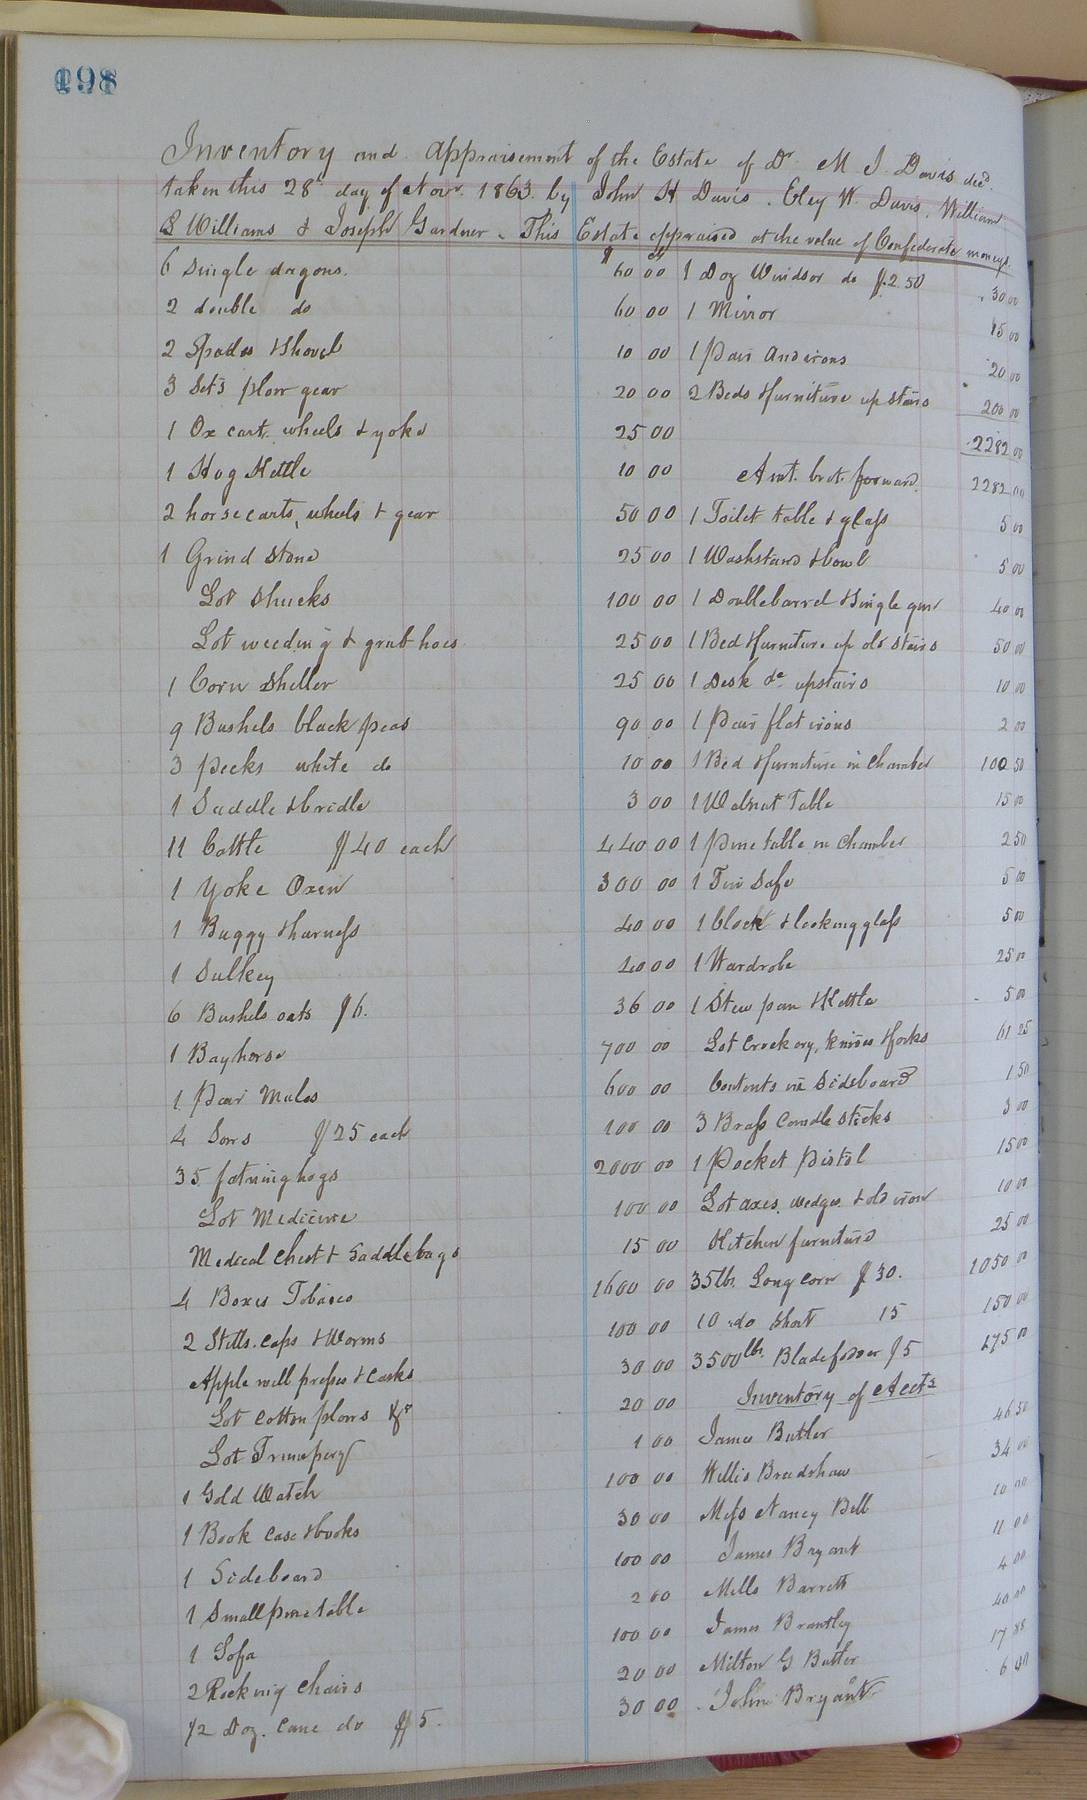 498
Inventory and Appraisement of the Estate of Dr M. J. Davis decd.
taken this 28th day of Novr. 1863. by John H Davis. Eley W. Davis. William
S Williams & Joseph Gardner. This Estate appraised at the value of Confederate moneys.
6 Single dagons. $60 00
2 double do 60 00
2 Spades & Shovel 10 00
3 Sets plow gear 20 00
1 Ox cart. wheels & yoke 25 00
1 Hog Kettle 10 00
2 horse carts, wheels & gear 50 00
1 Grind Stone 25 00
Lot Shucks 100 00
Lot weeding & grub hoes 25 00
1 Corn Sheller 25 00
9 Bushels black peas 90 00
3 pecks white do 10 00
1 Saddle & bridle 3 00
11 Cattle $40 each 440 00
1 Yoke Oxen 300 00
1 Buggy & harness 40 00
1 Sulkey 40 00
6 Bushels oats $6. 36 00
1 Bay horse 700 00
1 Pair Mules 600 00
4 Sows $25 each 100 00
35 fatning hogs 2000 00
Lot Medicine 100 00
Medical Chest & Saddlebags 15 00
4 Boxes Tobacco 1600 00
2 Stills. caps & Worms 100 00
Apple mill presses & Casks 30 00
Lot cotton plows &c 20 00
Lot Trumpery 1 00
1 Gold Watch 100 00
1 Book case & books 30 00
1 Sideboard 100 00
1 Small pine table 2 00
1 Sofa 100 00
2 Rocking Chairs 20 00
1/2 Doz. Cane do $5. 30 00
1 Doz Windsor do $2.50 30 00
1 Mirror 15 00
1 Pair Andirons 20 00
2 Beds & furniture up stairs 200 00
2282 00
Amt. brot. forward. 2282 00
1 Toilet table & glass 5 00
1 Washstand & bowl 5 00
1 Double barrel & Single gun 40 00
1 Bed & furniture up old stairs 50 00
1 Desk do upstairs 10 00
1 Pair flat irons 2 00
1 Bed & furniture in Chamber 100 50
1 Walnut Table 15 00
1 Pine table in Chamber 2 50
1 Tin Safe 5 00
1 Clock & looking glass 5 00
1 Wardrobe 25 00
1 Stew pan & Kettle 5 00
Lot Crockery, knives & forks 61 25
Contents in Sideboard 1 50
3 Brass Candle sticks 3 00
1 Pocket Pistol 15 00
Lot axes, wedges & old iron 10 00
Kitchen furniture 25 00
35 lbs. Long corn $30. 1050 00
10 do Short 15 150 00
3500 lbs. Bladefodder $5 175 00
Inventory of Accts
James Butler 46 50
Willis Bradshaw 34 00
Miss Nancy Bell 10 00
James Bryant 11 00
Mills Barrett 4 00
James Brantley 40 00
Milton G Butler 17 88
John Bryant 6 40